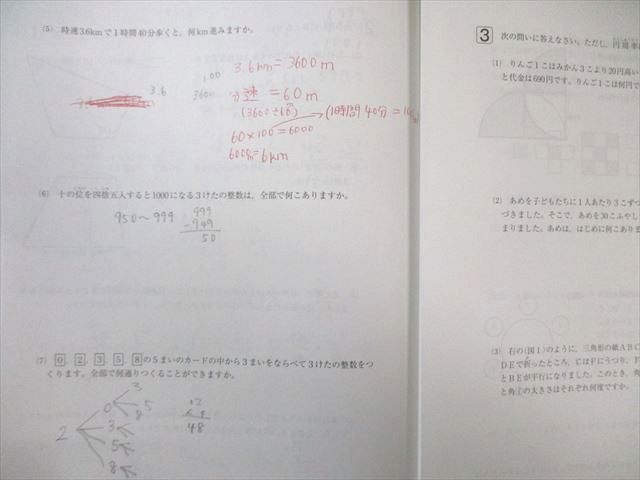 (5) 時速3.6kmで1時間40分歩くと,何km進みますか。
3.6km=3600m
100
3.6 3600
分速 = 60m
(3600÷60) (1時間40分=10
60×100=6000
6000=6km
(6) 十の位を四捨五入すると1000になる3けたの整数は,全部で何こありますか。
950～999
999
-949
50
(7) 0, 2, 3, 5, 8の5まいのカードの中から3まいをならべて3けたの整数をつ
くります。全部で何通りつくることができますか。
3
0 5
8
2 3
5
8
12
48
3 次の問いに答えなさい。ただし,円周率
(1) りんご1こはみかん3こより20円高い
と代金は690円です。りんご1こは何円で
(2) あめを子どもたちに1人あたり3こずつ
づきました。そこで,あめを30こふやし
まりました。あめは,はじめに何こありま
(3) 右の(図1)のように,三角形の紙ABC
DEで折ったところ,CはFにうつり,F
とBEが平行になりました。このとき,角
と角の大きさはそれぞれ何度ですか。